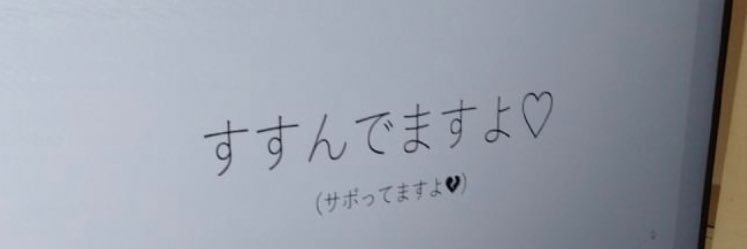 すすんでますよ♡
(サボってますよ💔)